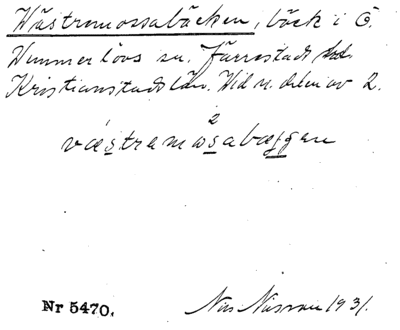 Wästremossabäcken, bäck i Ö.
Vemmerlövs sn. Järrestads hd.
Kristianstads län. Vid n. delen av 2.
2
væstremosabæggen
Nr 5470. Nils Nilsson 1931.